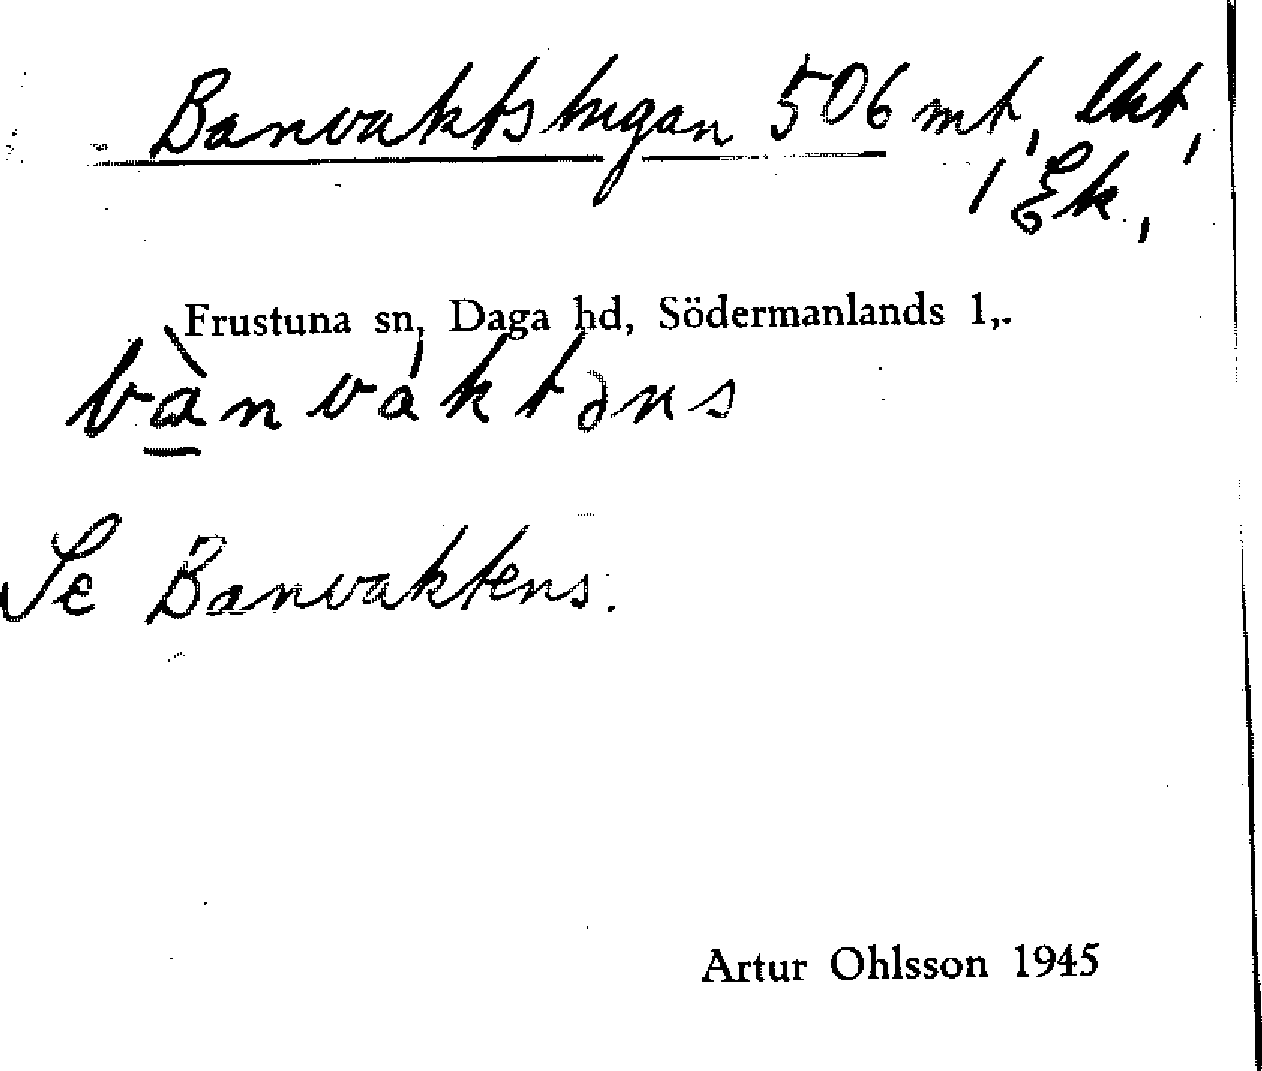 Banvaktstugan 506 mt, lht,
1 Ek.,
Frustuna sn, Daga hd, Södermanlands l,.
bànváktəns
Se Banvaktens.
Artur Ohlsson 1945